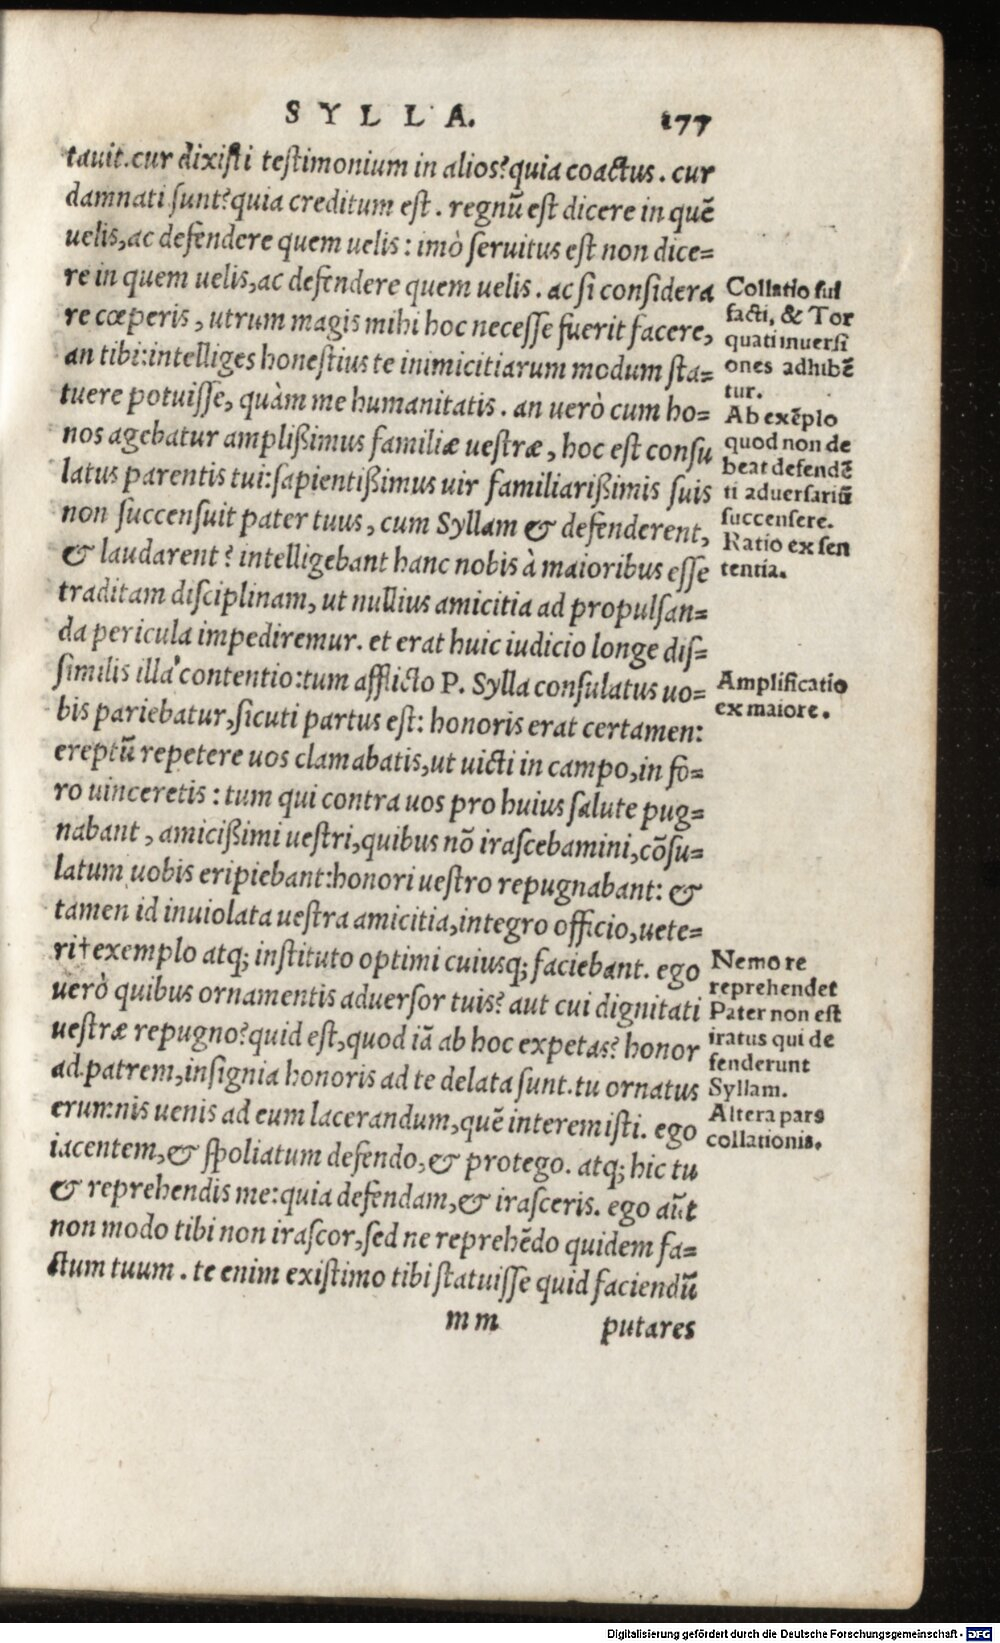 SYLLA. 177
tauit.cur dixisti testimonium in alios?quia coactus. cur
damnati sunt?quia creditum est. regnũ est dicere in quẽ
uelis,ac defendere quem uelis: imò seruitus est non dice=
re in quem uelis,ac defendere quem uelis. ac si considera
re cœperis, utrum magis mihi hoc necesse fuerit facere,
an tibi:intelliges honestius te inimicitiarum modum sta=
tuere potuisse, quàm me humanitatis. an uerò cum ho=
nos agebatur amplißimus familiæ uestræ, hoc est consu
latus parentis tui:sapientißimus uir familiarißimis suis
non succensuit pater tuus, cum Syllam & defenderent,
& laudarent? intelligebant hanc nobis à maioribus esse
traditam disciplinam, ut nullius amicitia ad propulsan=
da pericula impediremur. et erat huic iudicio longe dis=
similis illa contentio:tum afflicto P. Sylla consulatus uo=
bis pariebatur,sicuti partus est: honoris erat certamen:
ereptũ repetere uos clamabatis,ut uicti in campo,in fo=
ro uinceretis: tum qui contra uos pro huius salute pug=
nabant, amicißimi uestri,quibus nõ irascebamini,cõsu=
latum uobis eripiebant:honori uestro repugnabant: &
tamen id inuiolata uestra amicitia,integro officio,uete=
ri†exemplo atq; instituto optimi cuiusq; faciebant. ego
uerò quibus ornamentis aduersor tuis? aut cui dignitati
uestræ repugno?quid est,quod iã ab hoc expetas? honor
ad patrem,insignia honoris ad te delata sunt.tu ornatus
erum:nis uenis ad eum lacerandum,quẽ interemisti. ego
iacentem,& spoliatum defendo,& protego. atq; hic tu
& reprehendis me:quia defendam,& irasceris. ego aũt
non modo tibi non irascor,sed ne reprehẽdo quidem fa=
ctum tuum. te enim existimo tibi statuisse quid faciendũ
mm putares
Collatio sul
facti, & Tor
quati inuersi
ones adhibẽ
tur.
Ab exẽplo
quod non de
beat defendẽ
ti aduersariũ
succensere.
Ratio ex sen
tentia.
Amplificatio
ex maiore.
Nemo re
reprehendet
Pater non est
iratus qui de
fenderunt
Syllam.
Altera pars
collationis.
Digitalisierung gefördert durch die Deutsche Forschungsgemeinschaft - DFG